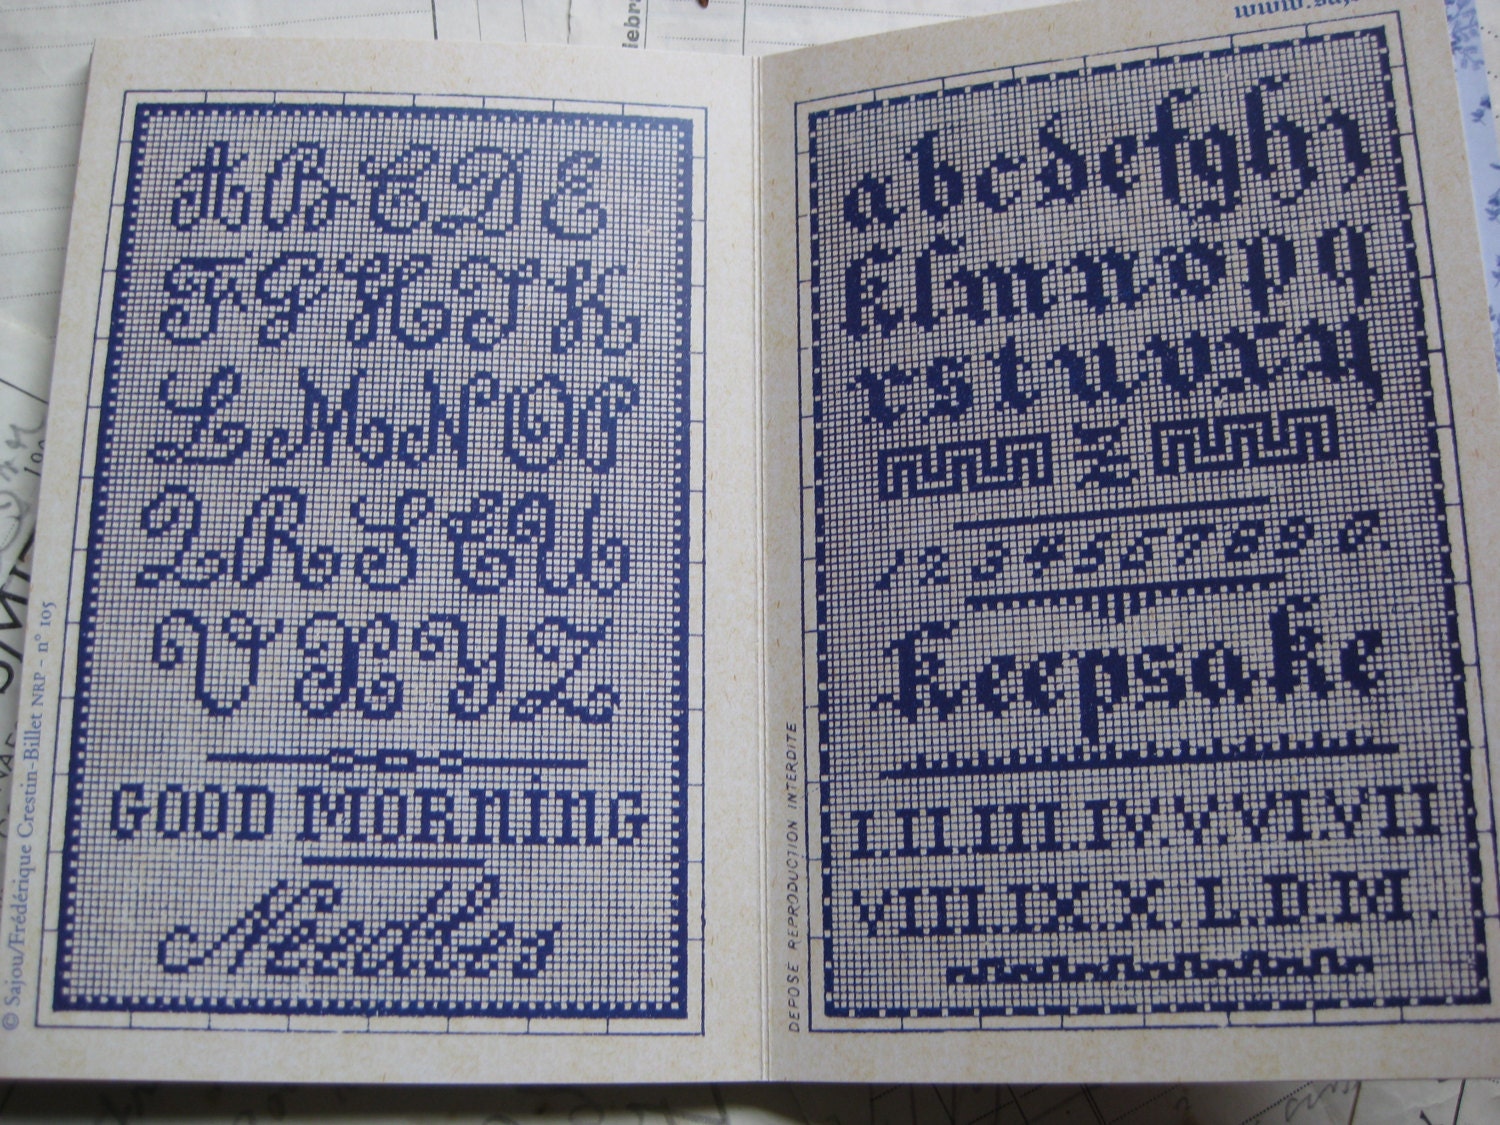 A B C D E
F G H I K
L M N O P
Q R S T U
V X Y Z
GOOD MORNING
Needles
© Sajou/Frédérique Crestin-Billet NRP - n° 105
a b c d e f g h i
k l m n o p q
r s t u v x y
1 2 3 4 5 6 7 8 9 0.
Keepsake
I.II.III.IV.V.VI.VII
VIII.IX.X.L.D.M.
DEPOSE REPRODUCTION INTERDITE